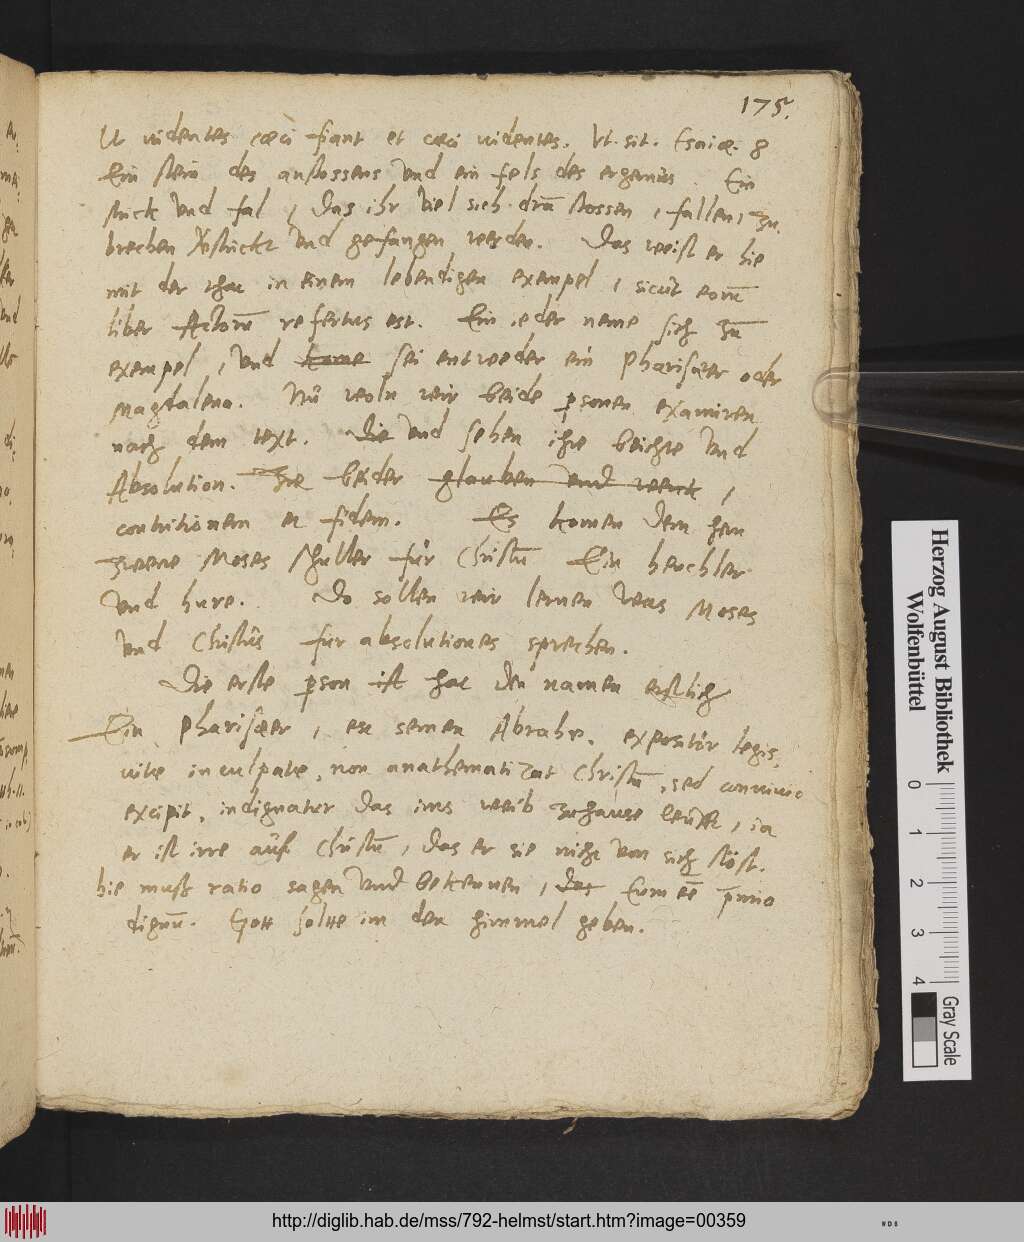 175.
Ut videntes cæci fiant et cæci videntes. Ut sit. Esaiæ. 8
Ein stein des anstossens und ein fels des ergernus. Ein
strick und fal, das ihr viel sich drā stossen, fallen, zu
brechen verstrickt und gefangen werden. Das weist er hie
mit der that in einem lebendigen exempel, sicut eorū
liber Actorū refertus est. Ein ieder neme sich zū
exempel, und kome sei entweder ein Phariſæer oder
Magdalena. Nu woln wir beide psonen examiren
nach dem text. Die und sehen ihre beichte und
Absolution. Ire beider glauben und werck,
contritionem et fidem. Es komen dem hern
zweene Moses schuller für Christū Ein heuchler
und hure. Do sollen wir lernen was Moses
und Christus fur absolutiones sprechen.
Die erste pson ist hat den namen erstlich
Ein Phariſæer, ex semen Abrahe. expositor legis.
vite inculpate, non anathematizat Christū, sed convivio
excipit, indignatur das ims weib zuhause leufft, ia
er ist irre auf Christū, das er sie nicht von sich stöst.
hie muss ratio sagen und bekennen, das Eum eē pmio
dignū. Gott solte im den himmel geben.
Herzog August Bibliothek
Wolfenbüttel
0 1 2 3 4
Gray Scale
http://diglib.hab.de/mss/792-helmst/start.htm?image=00359